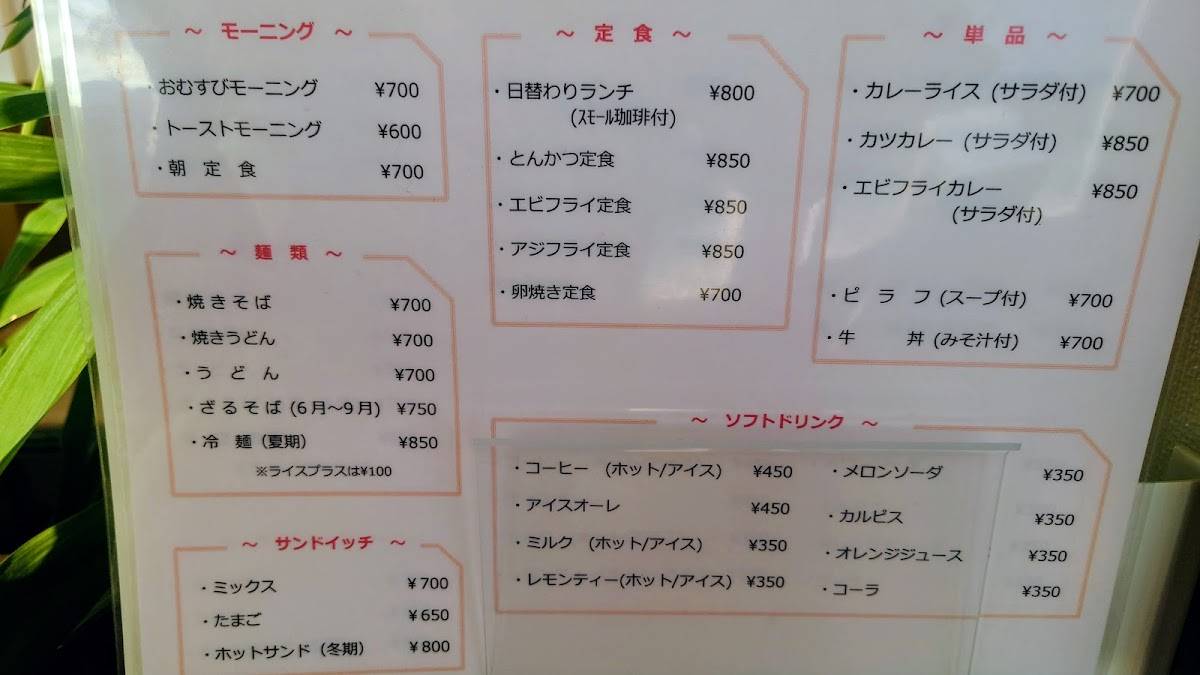 ～ モーニング ～
・おむすびモーニング ¥700
・トーストモーニング ¥600
・朝 定 食 ¥700
～ 麺 類 ～
・焼きそば ¥700
・焼きうどん ¥700
・う ど ん ¥700
・ざるそば (6月～9月) ¥750
・冷 麺 (夏期) ¥850
※ライスプラスは¥100
～ サンドイッチ ～
・ミックス ¥700
・たまご ¥650
・ホットサンド (冬期) ¥800
～ 定 食 ～
・日替わりランチ ¥800
(ｽﾓｰﾙ珈琲付)
・とんかつ定食 ¥850
・エビフライ定食 ¥850
・アジフライ定食 ¥850
・卵焼き定食 ¥700
～ 単 品 ～
・カレーライス (サラダ付) ¥700
・カツカレー (サラダ付) ¥850
・エビフライカレー ¥850
(サラダ付)
・ピ ラ フ (スープ付) ¥700
・牛 丼 (みそ汁付) ¥700
～ ソフトドリンク ～
・コーヒー (ホット/アイス) ¥450
・アイスオーレ ¥450
・ミルク (ホット/アイス) ¥350
・レモンティー(ホット/アイス) ¥350
・メロンソーダ ¥350
・カルピス ¥350
・オレンジジュース ¥350
・コーラ ¥350